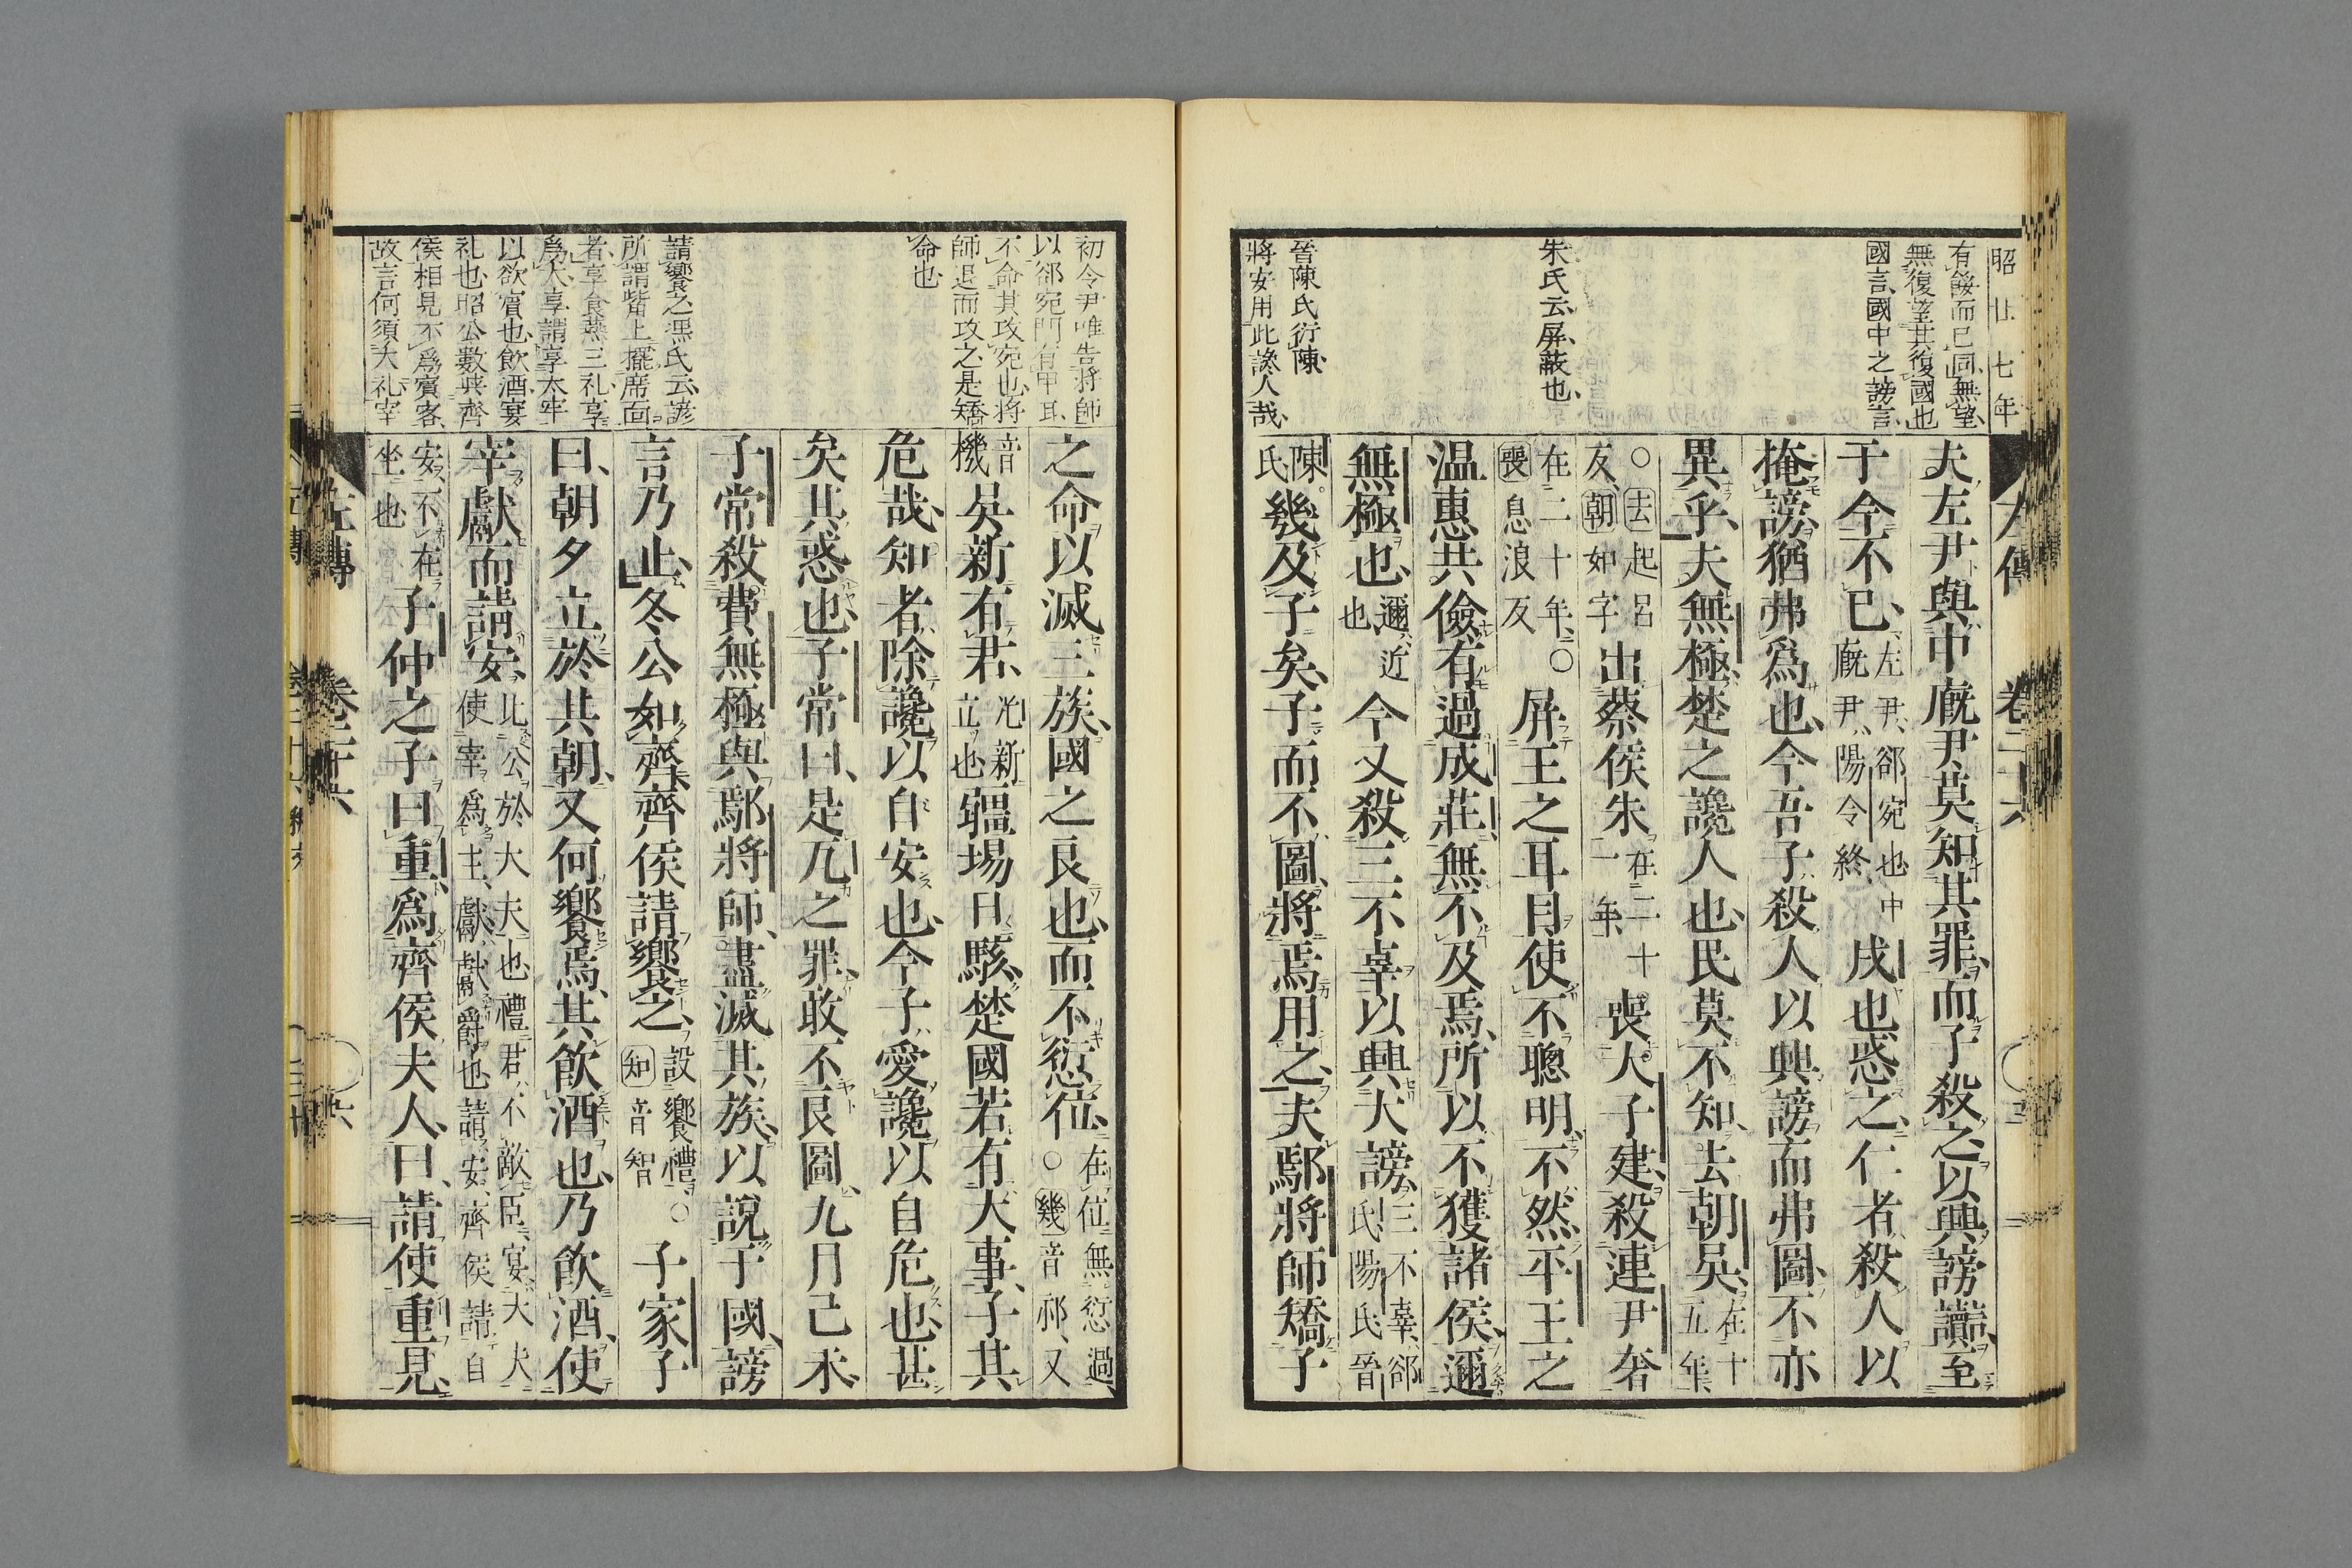 昭廿七年
有餒而已同無望
無復望其復國也
國言國中之謗言
朱氏云屏蔽也
晉陳氏衍陳
將安用此讒人哉
夫左尹與中廐尹莫知其罪而子殺之以興謗讟至
于今不已左尹郤宛也中廐尹陽令終戌也惑之仁者殺人以
掩謗猶弗爲也今吾子殺人以興謗而弗圖不亦
異乎夫無極楚之讒人也民莫不知去朝吳在十五年
○去起呂反朝如字出蔡侯朱在二十一年喪大子建殺連尹奢
在二十年○喪息浪反屏王之耳目使不聰明不然平王之
温惠共儉有過成莊無不及焉所以不獲諸侯邇
無極也邇近也今又殺三不辜以興大謗三不辜郤氏陽氏晉
陳氏幾及子矣子而不圖將焉用之夫鄢將師矯子
左傳 卷二十六
初令尹唯告將師
以郤宛門有甲耳
不命其攻宛也將
師退而攻之是矯
命也
請饗之馮氏云諺
所謂觜上擺席面
者享食燕三礼享
爲大享謂享太牢
以飲賓也飲酒宴
礼也昭公數與齊
侯相見不爲賓客
故言何須大礼宰
之命以滅三族國之良也而不愆位在位無愆過○幾音祁又
音機吳新有君光新立也疆埸日駭楚國若有大事子其
危哉知者除讒以自安也今子愛讒以自危也甚
矣其惑也子常曰是瓦之罪敢不良圖九月己未
子常殺費無極與鄢將師盡滅其族以說于國謗
言乃止冬公如齊齊侯請饗之設饗禮○知音智子家子
曰朝夕立於其朝又何饗焉其飲酒也乃飲酒使
宰獻而請安比公於大夫也禮君不敵臣宴大夫使宰爲主獻獻爵也請安齊侯請自
安不在坐也子仲之子曰重爲齊侯夫人曰請使重見
左傳 卷二十六